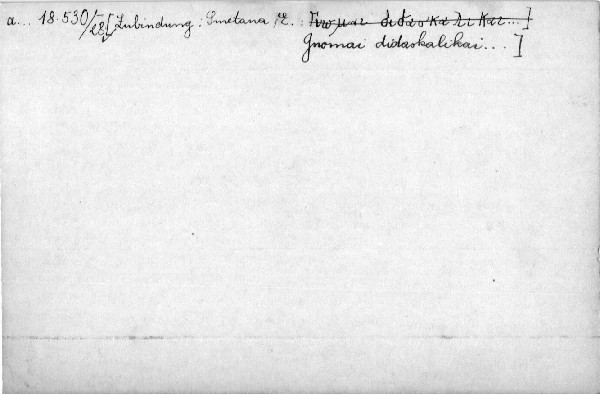 a... 18.530/28 [Zubindung: Smetana, E.: Γνωμαι διδασκαλικαι...]
Gnomai didaskalikai...]